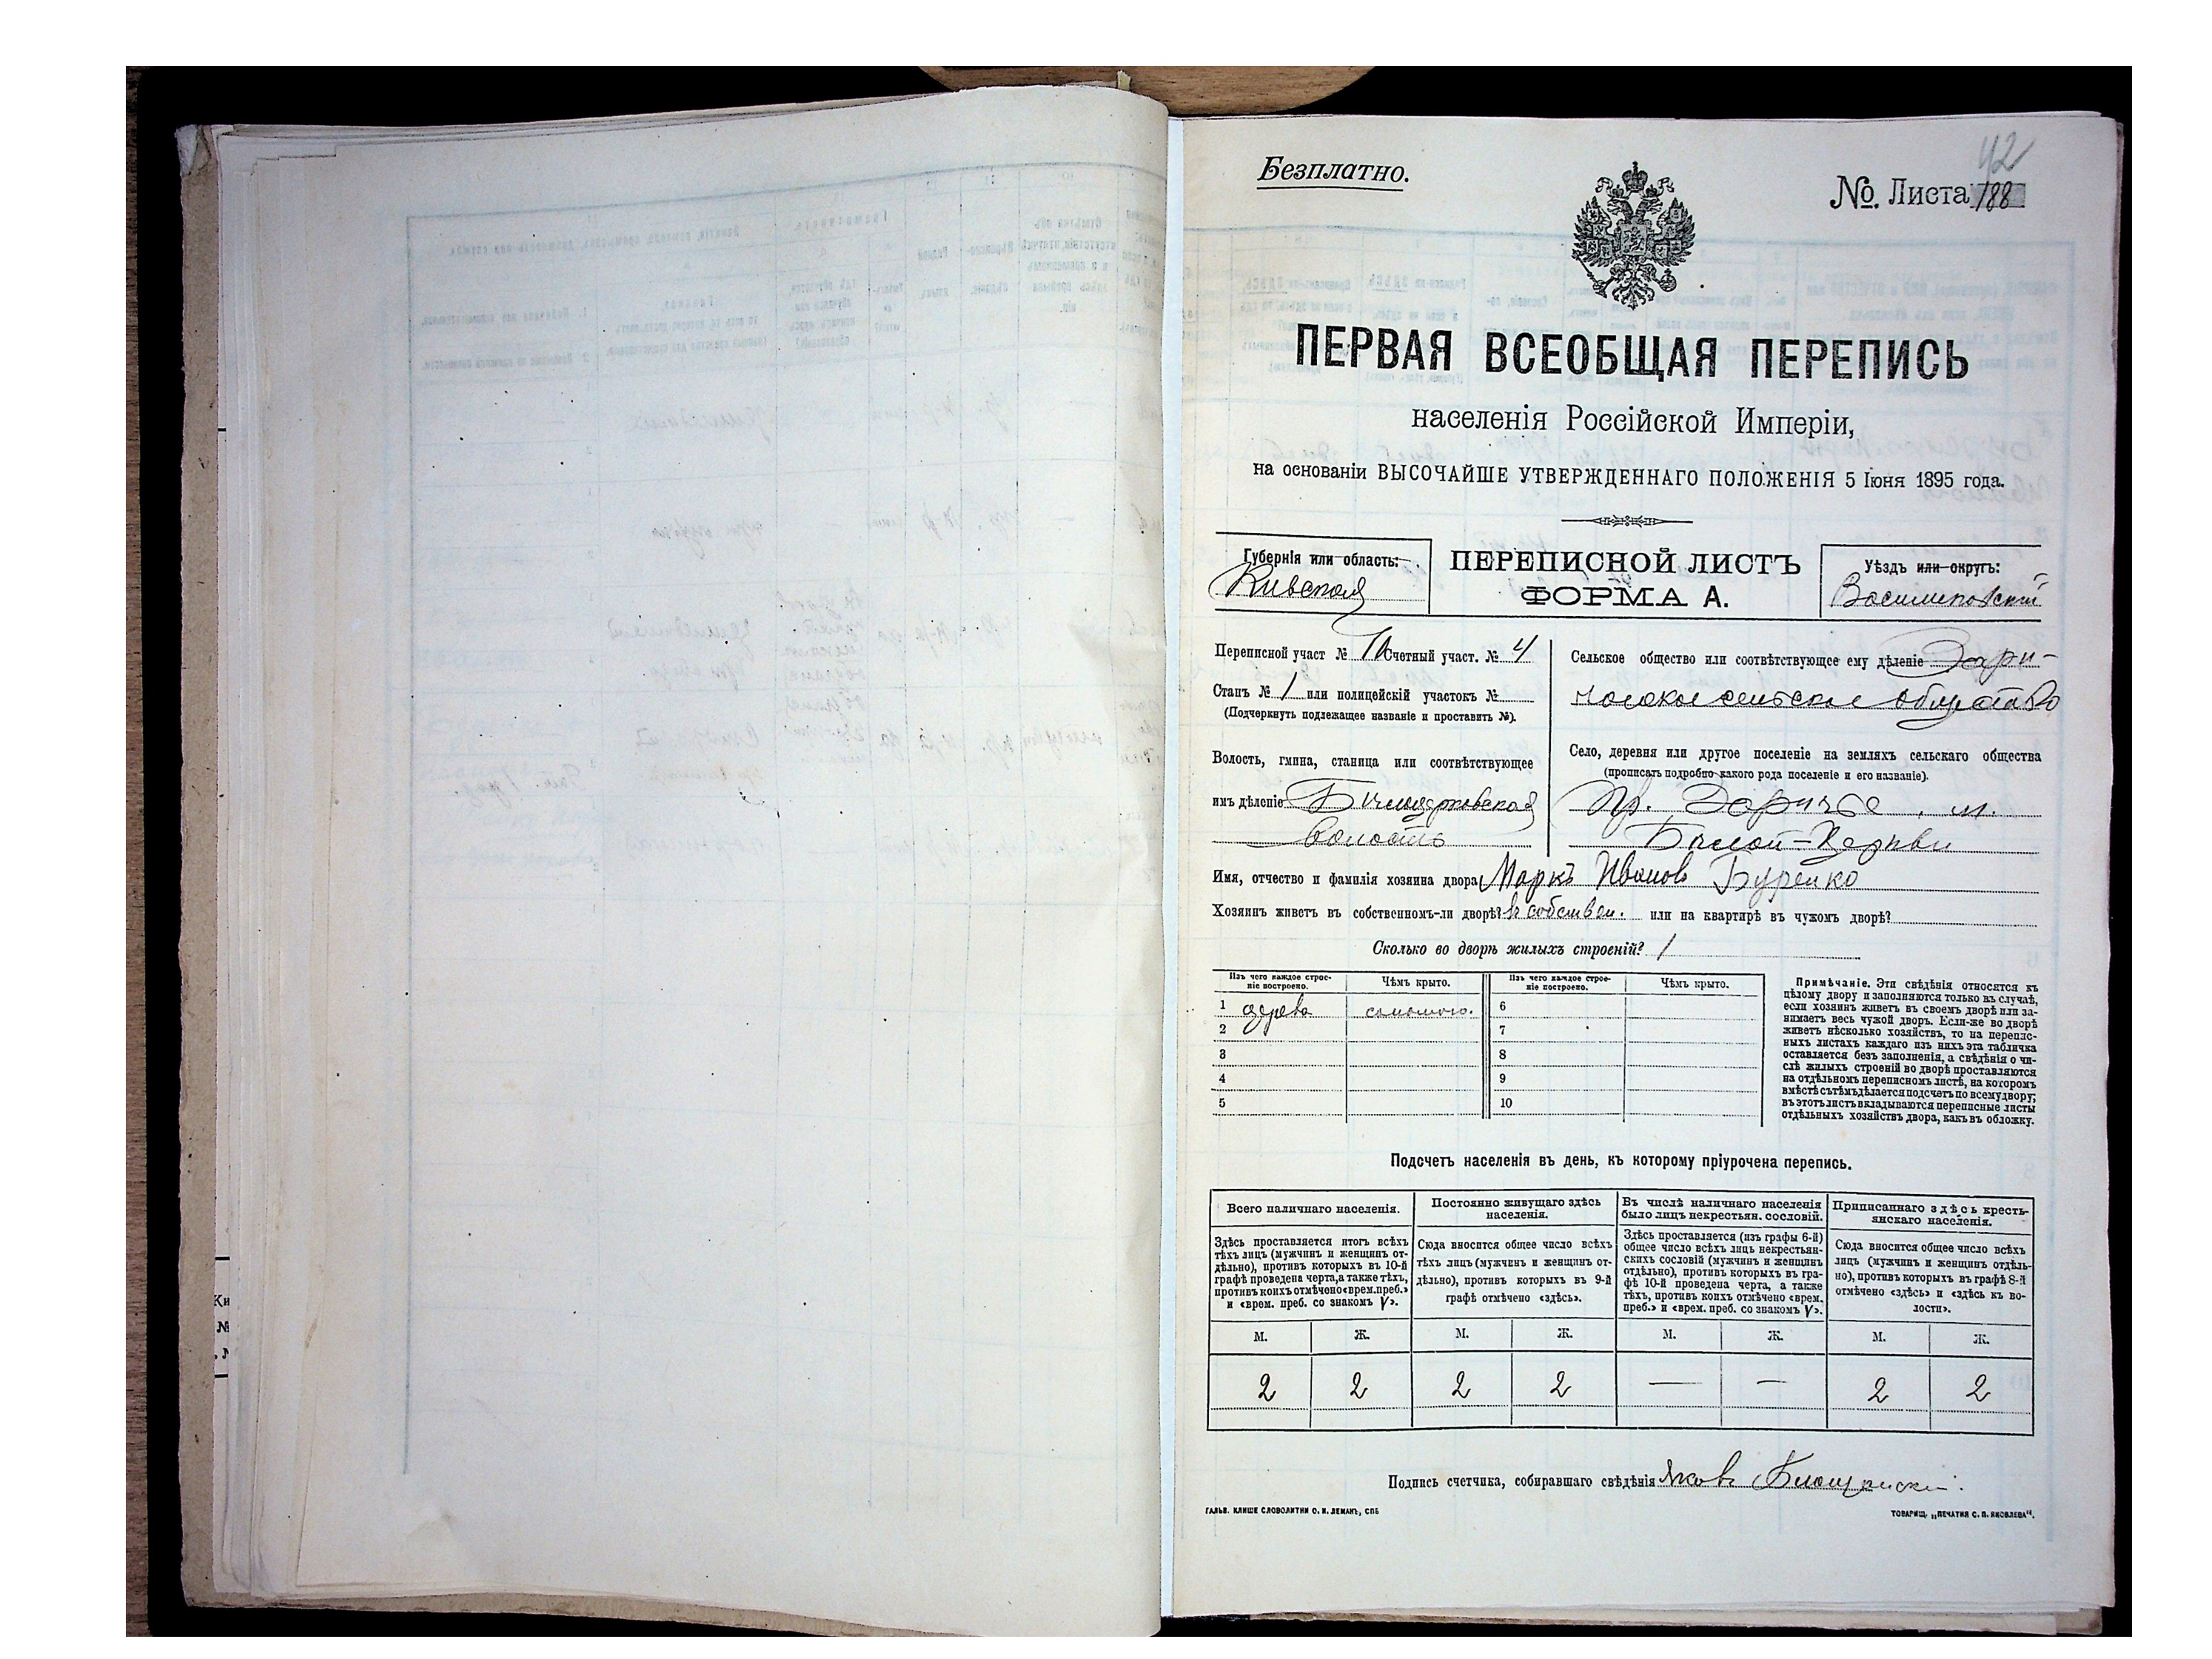 42
Безплатно.
№. Листа 188
ПЕРВАЯ ВСЕОБЩАЯ ПЕРЕПИСЬ
населенія Россійской Имперіи,
на основаніи ВЫСОЧАЙШЕ УТВЕРЖДЕННАГО ПОЛОЖЕНІЯ 5 Іюня 1895 года.
Губернія или область:
Киевская
ПЕРЕПИСНОЙ ЛИСТЪ
ФОРМА А.
Уѣздъ или округъ:
Васильковскій
Переписной участ № Счетный участ. № 4
Станъ № 1 или полицейскій участокъ №
(Подчеркнуть подлежащее названіе и проставить №).
Волость, гмина, станица или соотвѣтствующее
имъ дѣленіе Бѣлоцерковская
волость
Сельское общество или соотвѣтствующее ему дѣленіе Зари-
общество
Село, деревня или другое поселеніе на земляхъ сельскаго общества
(прописать подробно какого рода поселеніе и его названіе).
Пр. Заричье, м.
Бѣлой-Церкви
Имя, отчество и фамилія хозяина двора Маркъ Ивановъ Буренко
Хозяинъ живетъ въ собственномъ-ли дворѣ? въ собствен. или на квартирѣ въ чужомъ дворѣ?
Сколько во дворѣ жилыхъ строеній? 1
Изъ чего каждое строе-
ніе построено.
Чѣмъ крыто.
Изъ чего каждое строе-
ніе построено.
Чѣмъ крыто.
1 дерева соломою. 6
2 7
3 8
4 9
5 10
Примѣчаніе. Эти свѣдѣнія относятся къ
цѣлому двору и заполняются только въ случаѣ,
если хозяинъ живетъ въ своемъ дворѣ или за-
нимаетъ весь чужой дворъ. Если-же во дворѣ
живетъ нѣсколько хозяйствъ, то на перепис-
ныхъ листахъ каждаго изъ нихъ эта табличка
оставляется безъ заполненія, а свѣдѣнія о чи-
слѣ жилыхъ строеній во дворѣ проставляются
на отдѣльномъ переписномъ листѣ, на которомъ
вмѣстѣ съ тѣмъ дѣлается подсчетъ по всему двору;
въ этотъ листъ вкладываются переписные листы
отдѣльныхъ хозяйствъ двора, какъ въ обложку.
Подсчетъ населенія въ день, къ которому пріурочена перепись.
Всего наличнаго населенія.
Здѣсь проставляется итогъ всѣхъ
тѣхъ лицъ (мужчинъ и женщинъ от-
дѣльно), противъ которыхъ въ 10-й
графѣ проведена черта, а также тѣхъ,
противъ коихъ отмѣчено «врем. преб.»
и «врем. преб. со знакомъ V».
Постоянно живущаго здѣсь
населенія.
Сюда вносится общее число всѣхъ
тѣхъ лицъ (мужчинъ и женщинъ от-
дѣльно), противъ которыхъ въ 9-й
графѣ отмѣчено «здѣсь».
Въ числѣ наличнаго населенія
было лицъ некрестьян. сословій.
Здѣсь проставляется (изъ графы 6-й)
общее число всѣхъ лицъ некрестьян-
скихъ сословій (мужчинъ и женщинъ
отдѣльно), противъ которыхъ въ гра-
фѣ 10-й проведена черта, а также
тѣхъ, противъ коихъ отмѣчено «врем.
преб.» и «врем. преб. со знакомъ V».
Приписаннаго здѣсь кресть-
янскаго населенія.
Сюда вносится общее число всѣхъ
лицъ (мужчинъ и женщинъ отдѣль-
но), противъ которыхъ въ графѣ 8-й
отмѣчено «здѣсь» и «здѣсь къ во-
лости».
М. Ж. М. Ж. М. Ж. М. Ж.
2 2 2 2 — — 2 2
Подпись счетчика, собиравшаго свѣдѣнія Яковъ
ГАЛЬВ. КЛИШЕ СЛОВОЛИТНИ О. И. ЛЕМАНЪ, СПБ
ТОВАРИЩ. „ПЕЧАТНЯ С. П. ЯКОВЛЕВА“.